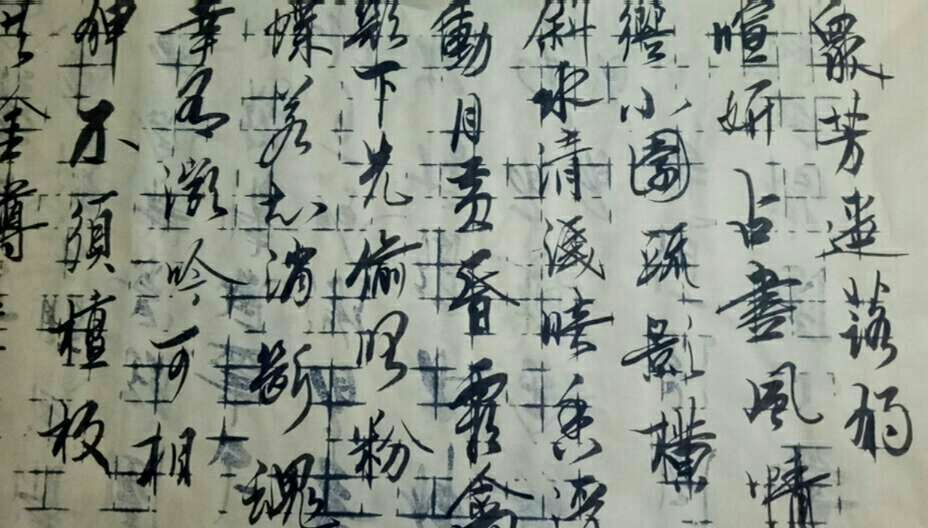 眾芳遥落獨
暄妍占盡風情
嚮小園疏影橫
斜水清淺暗香浮
動月黃昏霜禽
欲下先偷眼粉
蝶若知消斷魂
幸有微吟可相
狎不須檀板
共金樽